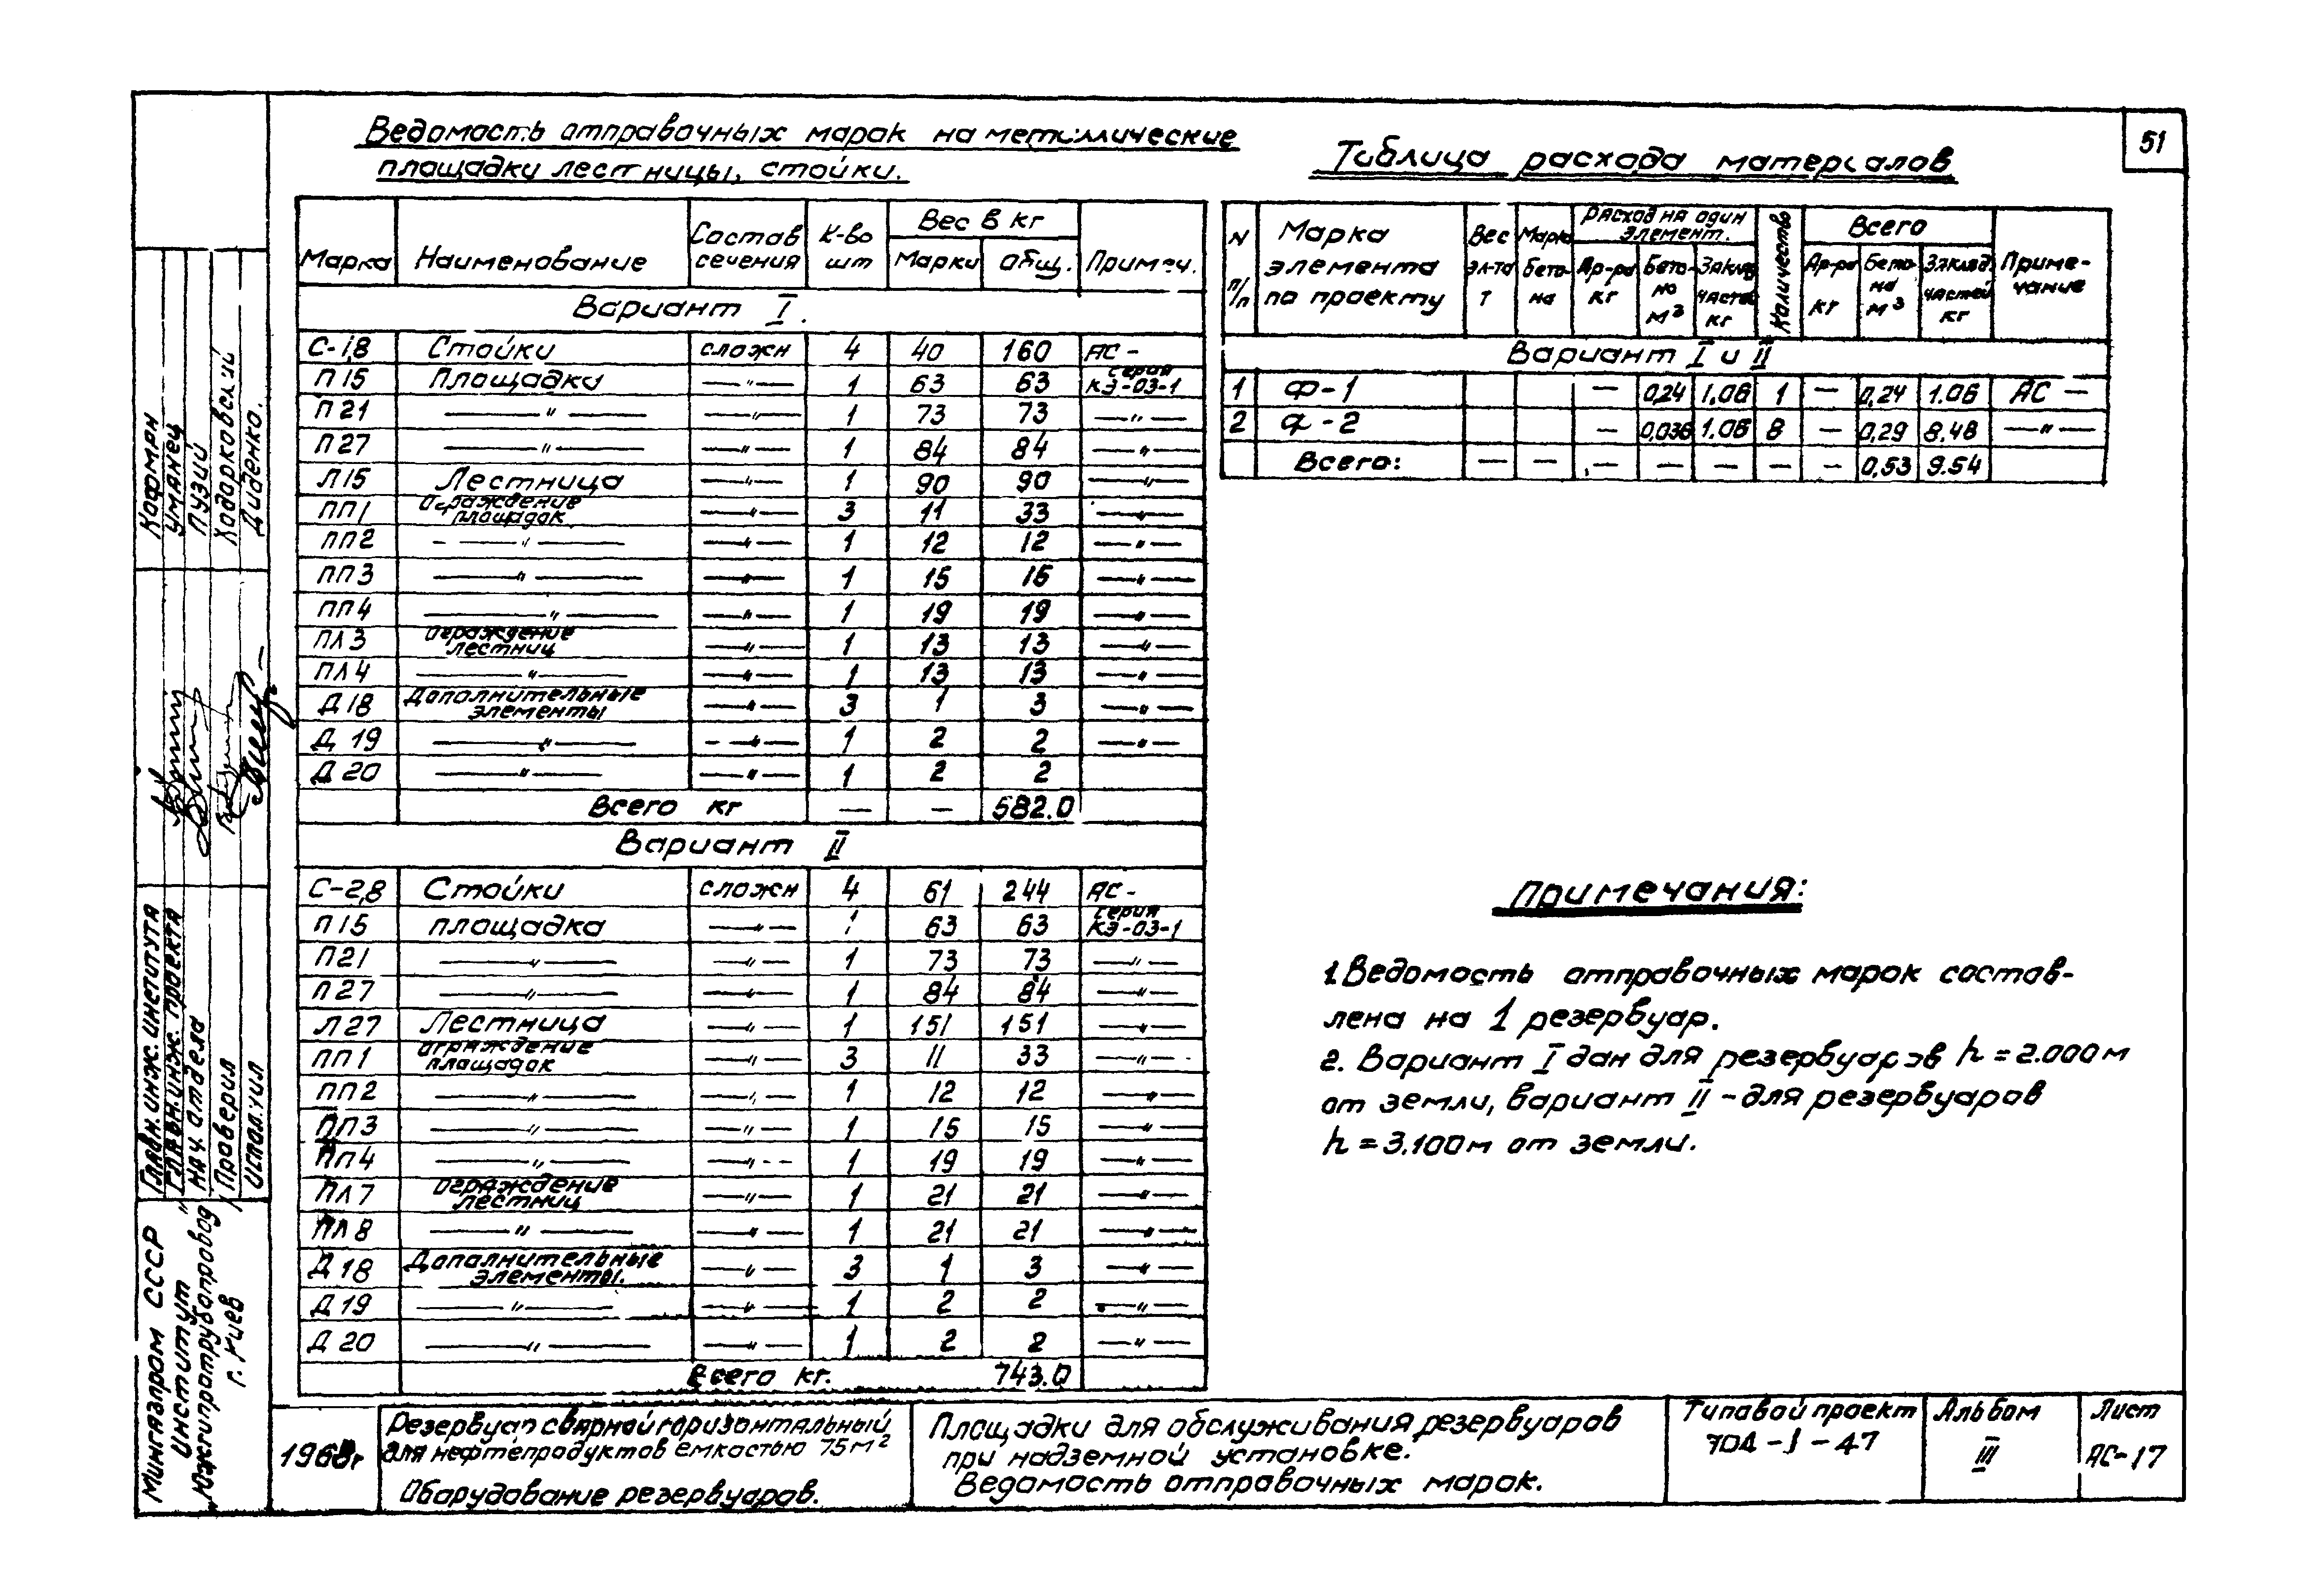 51
Ведомость отправочных марок на металлические
площадки лестницы, стойки.
Марка Наименование Состав сечения К-во шт Вес в кг Марки Общ. Примеч.
Вариант I.
С-1,8 Стойки сложн 4 40 160 АС-
П15 Площадка —"— 1 63 63 серия КЭ-03-1
П21 —"— —"— 1 73 73 —"—
П27 —"— —"— 1 84 84 —"—
Л15 Лестница —"— 1 90 90 —"—
ПП1 Ограждение площадок —"— 3 11 33 —"—
ПП2 —"— —"— 1 12 12 —"—
ПП3 —"— —"— 1 15 15 —"—
ПП4 —"— —"— 1 19 19 —"—
ПЛ3 Ограждение лестниц —"— 1 13 13 —"—
ПЛ4 —"— —"— 1 13 13 —"—
Д18 Дополнительные элементы —"— 3 1 3 —"—
Д19 —"— —"— 1 2 2 —"—
Д20 —"— —"— 1 2 2
Всего кг — — 582.0
Вариант II
С-2,8 Стойки сложн 4 61 244 АС-
П15 площадка —"— 1 63 63 серия КЭ-03-1
П21 —"— —"— 1 73 73 —"—
П27 —"— —"— 1 84 84 —"—
Л27 Лестница —"— 1 151 151 —"—
ПП1 Ограждение площадок —"— 3 11 33 —"—
ПП2 —"— —"— 1 12 12 —"—
ПП3 —"— —"— 1 15 15 —"—
ПП4 —"— —"— 1 19 19 —"—
ПЛ7 Ограждение лестниц —"— 1 21 21 —"—
ПЛ8 —"— —"— 1 21 21 —"—
Д18 Дополнительные элементы. —"— 3 1 3 —"—
Д19 —"— —"— 1 2 2 —"—
Д20 —"— —"— 1 2 2 —"—
Всего кг. 743.0
Таблица расхода материалов
N п/п Марка элемента по проекту Вес эл-та т Марка бетона Расход на один элемент. Ар-ра кг Бетона м3 Заклад частей кг Количество Всего Ар-ра кг Бетона м3 Заклад. частей кг Примечание
Вариант I и II
1 Ф-1 — 0,24 1.06 1 — 0,24 1.06 АС —
2 Ф-2 — 0,036 1.06 8 — 0,29 8.48 —"—
Всего: — — — — — — — 0,53 9.54
Примечания:
1. Ведомость отправочных марок состав-
лена на 1 резервуар.
2. Вариант I дан для резервуаров h=2.000м
от земли, вариант II - для резервуаров
h=3.100м от земли.
Кафман
Уманец
Пузий
Ходорковский
Диденко.
Главн.инж.института
Главн.инж. проекта
Нач. отдела
Проверил
Исполнил
Мингазпром СССР
Институт
„Южгипротрубопровод"
г. Киев
Резервуар сварной горизонтальный
для нефтепродуктов емкостью 75м2
Оборудование резервуаров.
Площадки для обслуживания резервуаров
при надземной установке.
Ведомость отправочных марок.
Типовой проект
704-1-47
Альбом
III
Лист
АС-17